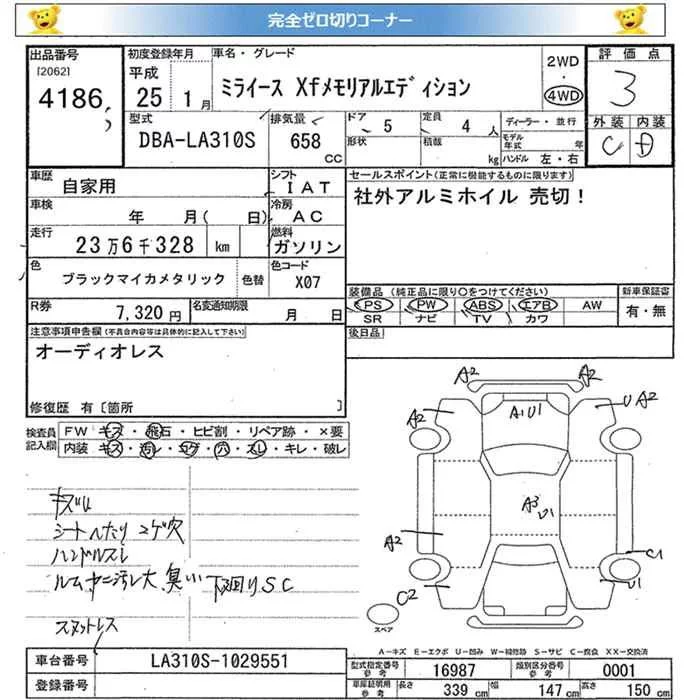 完全ゼロ切りコーナー
出品番号
[2062]
4186
初度登録年月
平成
25 1月
車名・グレード
ミライース Xfメモリアルエディション
2WD
・
4WD
評価点
3
型式
DBA-LA310S
排気量
658
CC
ドア
5
形状
定員
4 人
積載
kg
ディーラー・並行
モデル年式 年
ハンドル 左・右
外装 内装
C D
車歴
自家用
シフト
IAT
車検
年 月( 日)
冷房
AC
走行
23万6千328 km
燃料
ガソリン
色
ブラックマイカメタリック
色替
色コード
X07
R券
7,320円
名変通知期限
月 日
セールスポイント(正常に機能するものに限ります)
社外アルミホイル 売切!
装備品(純正品に限り○をつけてください)
PS PW ABS エアB AW
SR ナビ TV カワ
新車保証書
有・無
後日品
注意事項申告欄(不具合内容等は具体的に記入して下さい)
オーディオレス
修復歴 有〔箇所 〕
検査員記入欄
FW キズ・飛石・ヒビ割・リペア跡・×要
内装 キズ・汚レ・コゲ・穴・スレ・キレ・破レ
キズU
シートへたり コゲ穴
ハンドルスレ
ルームヤニ汚レ大 臭い 下廻りSC
スタットレス
A2 A2
A2 A1U1 U A2
A3 U1
A2 C1
C2 U1
スペア
A-キズ E-エクボ U-凹み W-補修跡 S-サビ C-腐食 XX-交換済
車台番号
LA310S-1029551
登録番号
型式指定番号
参考
16987
類別区分番号
参考
0001
車庫証明用
参考
長さ 339 cm 幅 147 cm 高さ 150 cm